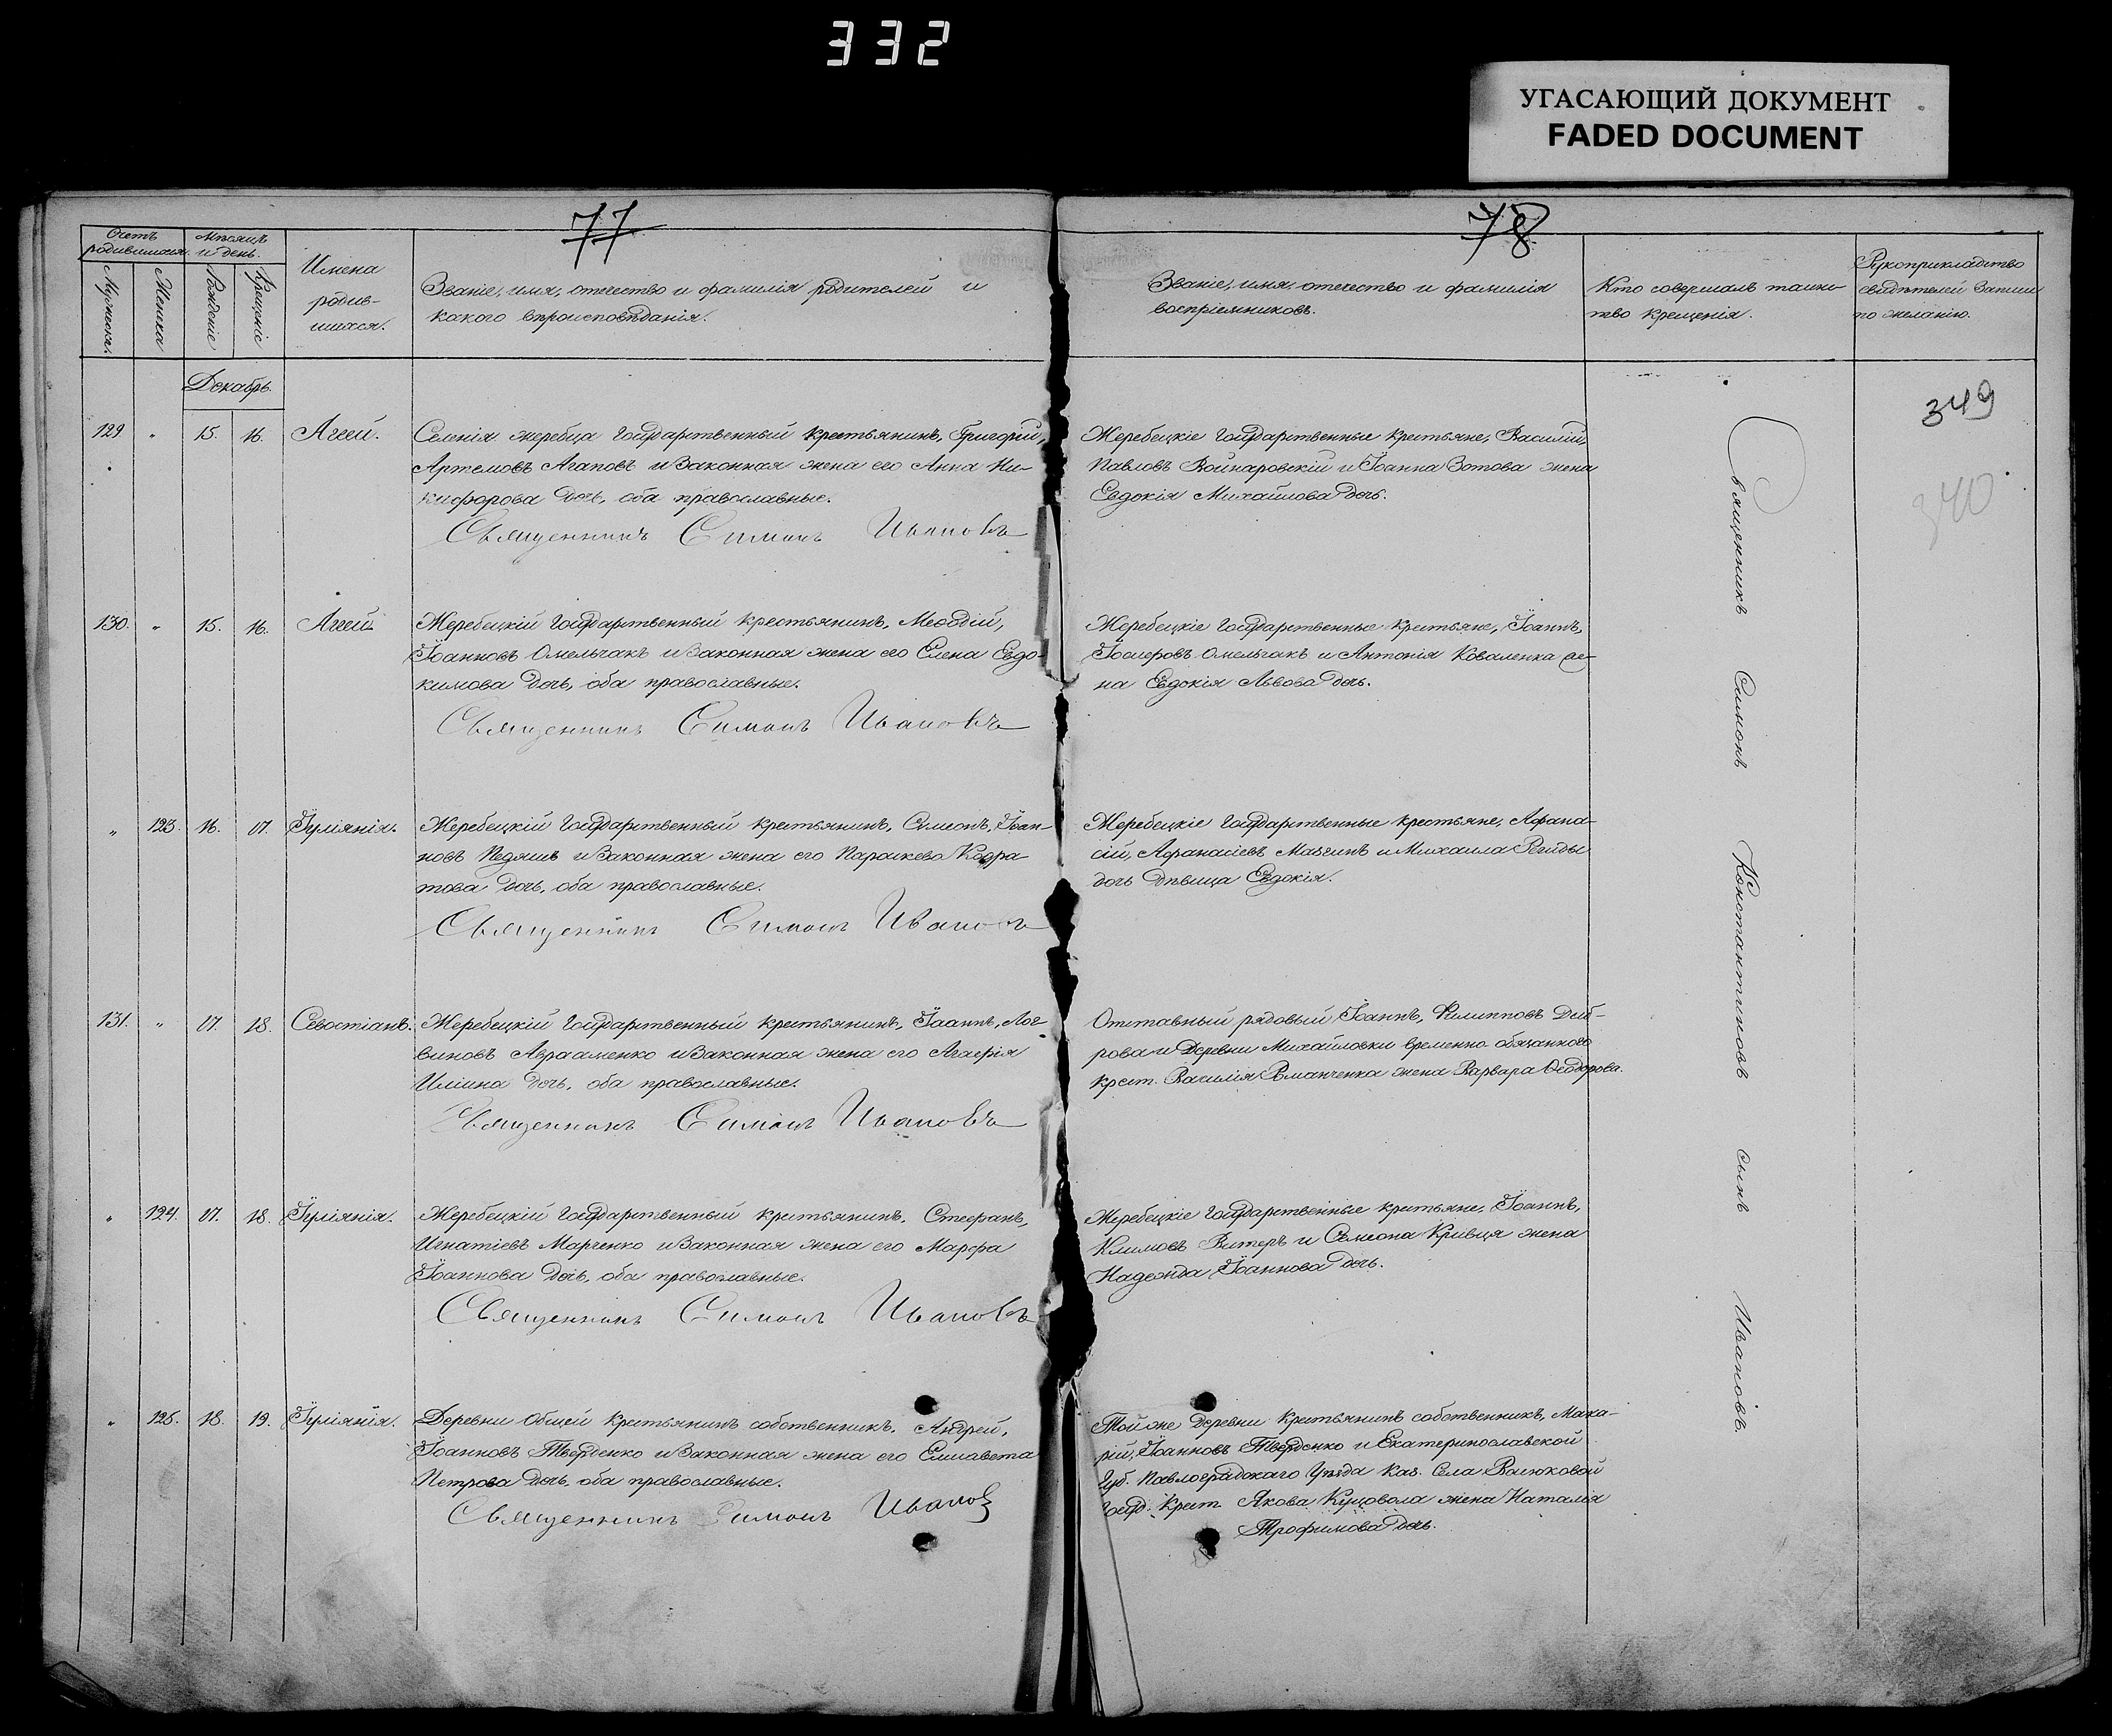 332
УГАСАЮЩИЙ ДОКУМЕНТ
FADED DOCUMENT
77
78
Счетъ родившихся.
Мужеска.
Женска
Мѣсяцъ и день.
Рожденіе
Крещеніе
Имена родив-
шихся.
Званіе, имя, отечество и фамилія родителей и
какого вѣроисповѣданія.
Званіе, имя, отечество и фамилія
воспріемниковъ.
Кто совершалъ таин-
тво крещенія.
Рукоприкладство
свидѣтелей записи
по желанію.
349
340
Декабрь.
129 " 15. 16. Аггей.
Селенія жеребца Государственный крестьянинъ, Григорій,
Артемовъ Агаповъ и законная жена его Анна Ни-
кифорова дочь, оба православные.
Священникъ Симонъ Ивановъ
Жеребецкіе Государственные крестьяне, Василій,
Павловъ Войнаровскій и Іоанна Зотова жена
Евдокія Михайлова дочь.
130. " 15. 16. Аггей.
Жеребецкій Государственный крестьянинъ, Меѳодій,
Іоанновъ Омельчакъ и законная жена его Елена Евдо-
кимова дочь, оба православные.
Священникъ Симонъ Ивановъ
Жеребецкіе Государственные крестьяне, Іоаннъ,
Омельчакъ и Антонія Коваленка же-
на Евдокія Львова дочь.
" 123. 16. 17. Іуліянія.
Жеребецкій Государственный крестьянинъ, Симеонъ, Іоан-
новъ Педяшъ и законная жена его Параскева Кодра
това дочь, оба православные.
Священникъ Симонъ Ивановъ
Жеребецкіе Государственные крестьяне, Афана-
сій, Афанасіевъ и Михаила Региды
дочь дѣвица Евдокія.
131. " 17. 18. Севостіанъ.
Жеребецкій Государственный крестьянинъ, Іоаннъ, Лог-
виновъ Авраменко и законная жена его Агафія
Иліина дочь, оба православные.
Священникъ Симонъ Ивановъ
Отставный рядовый Іоаннъ, Филипповъ Диб-
рова и Деревни Михайловки временно обязаннаго
крест. Василія Романченка жена Варвара Ѳеодорова.
" 124. 17. 18. Іуліянія.
Жеребецкій Государственный крестьянинъ, Стефанъ,
Игнатіевъ Марченко и законная жена его Марфа
Іоаннова дочь, оба православные.
Священникъ Симонъ Ивановъ
Жеребецкіе Государственные крестьяне, Іоаннъ,
Климовъ Витеръ и Симеона Кривця жена
Надежда Іоаннова дочь.
" 125. 18. 19. Іуліянія.
Деревни Общей крестьянинъ собственникъ, Андрей,
Іоанновъ Тверденко и законная жена его Елисавета
Петрова дочь, оба православные.
Священникъ Симонъ Ивановъ
Той же Деревни крестьянинъ собственникъ, Мака-
рій, Іоанновъ Тверденко и Екатеринославской
Губ. Павлоградскаго Уѣзда каз. Села Васюковой
Госуд. Крест. Якова Куцовола жена Наталія
Трофимова дочь.
Священникъ Симонъ Константиновъ сынъ Ивановъ.